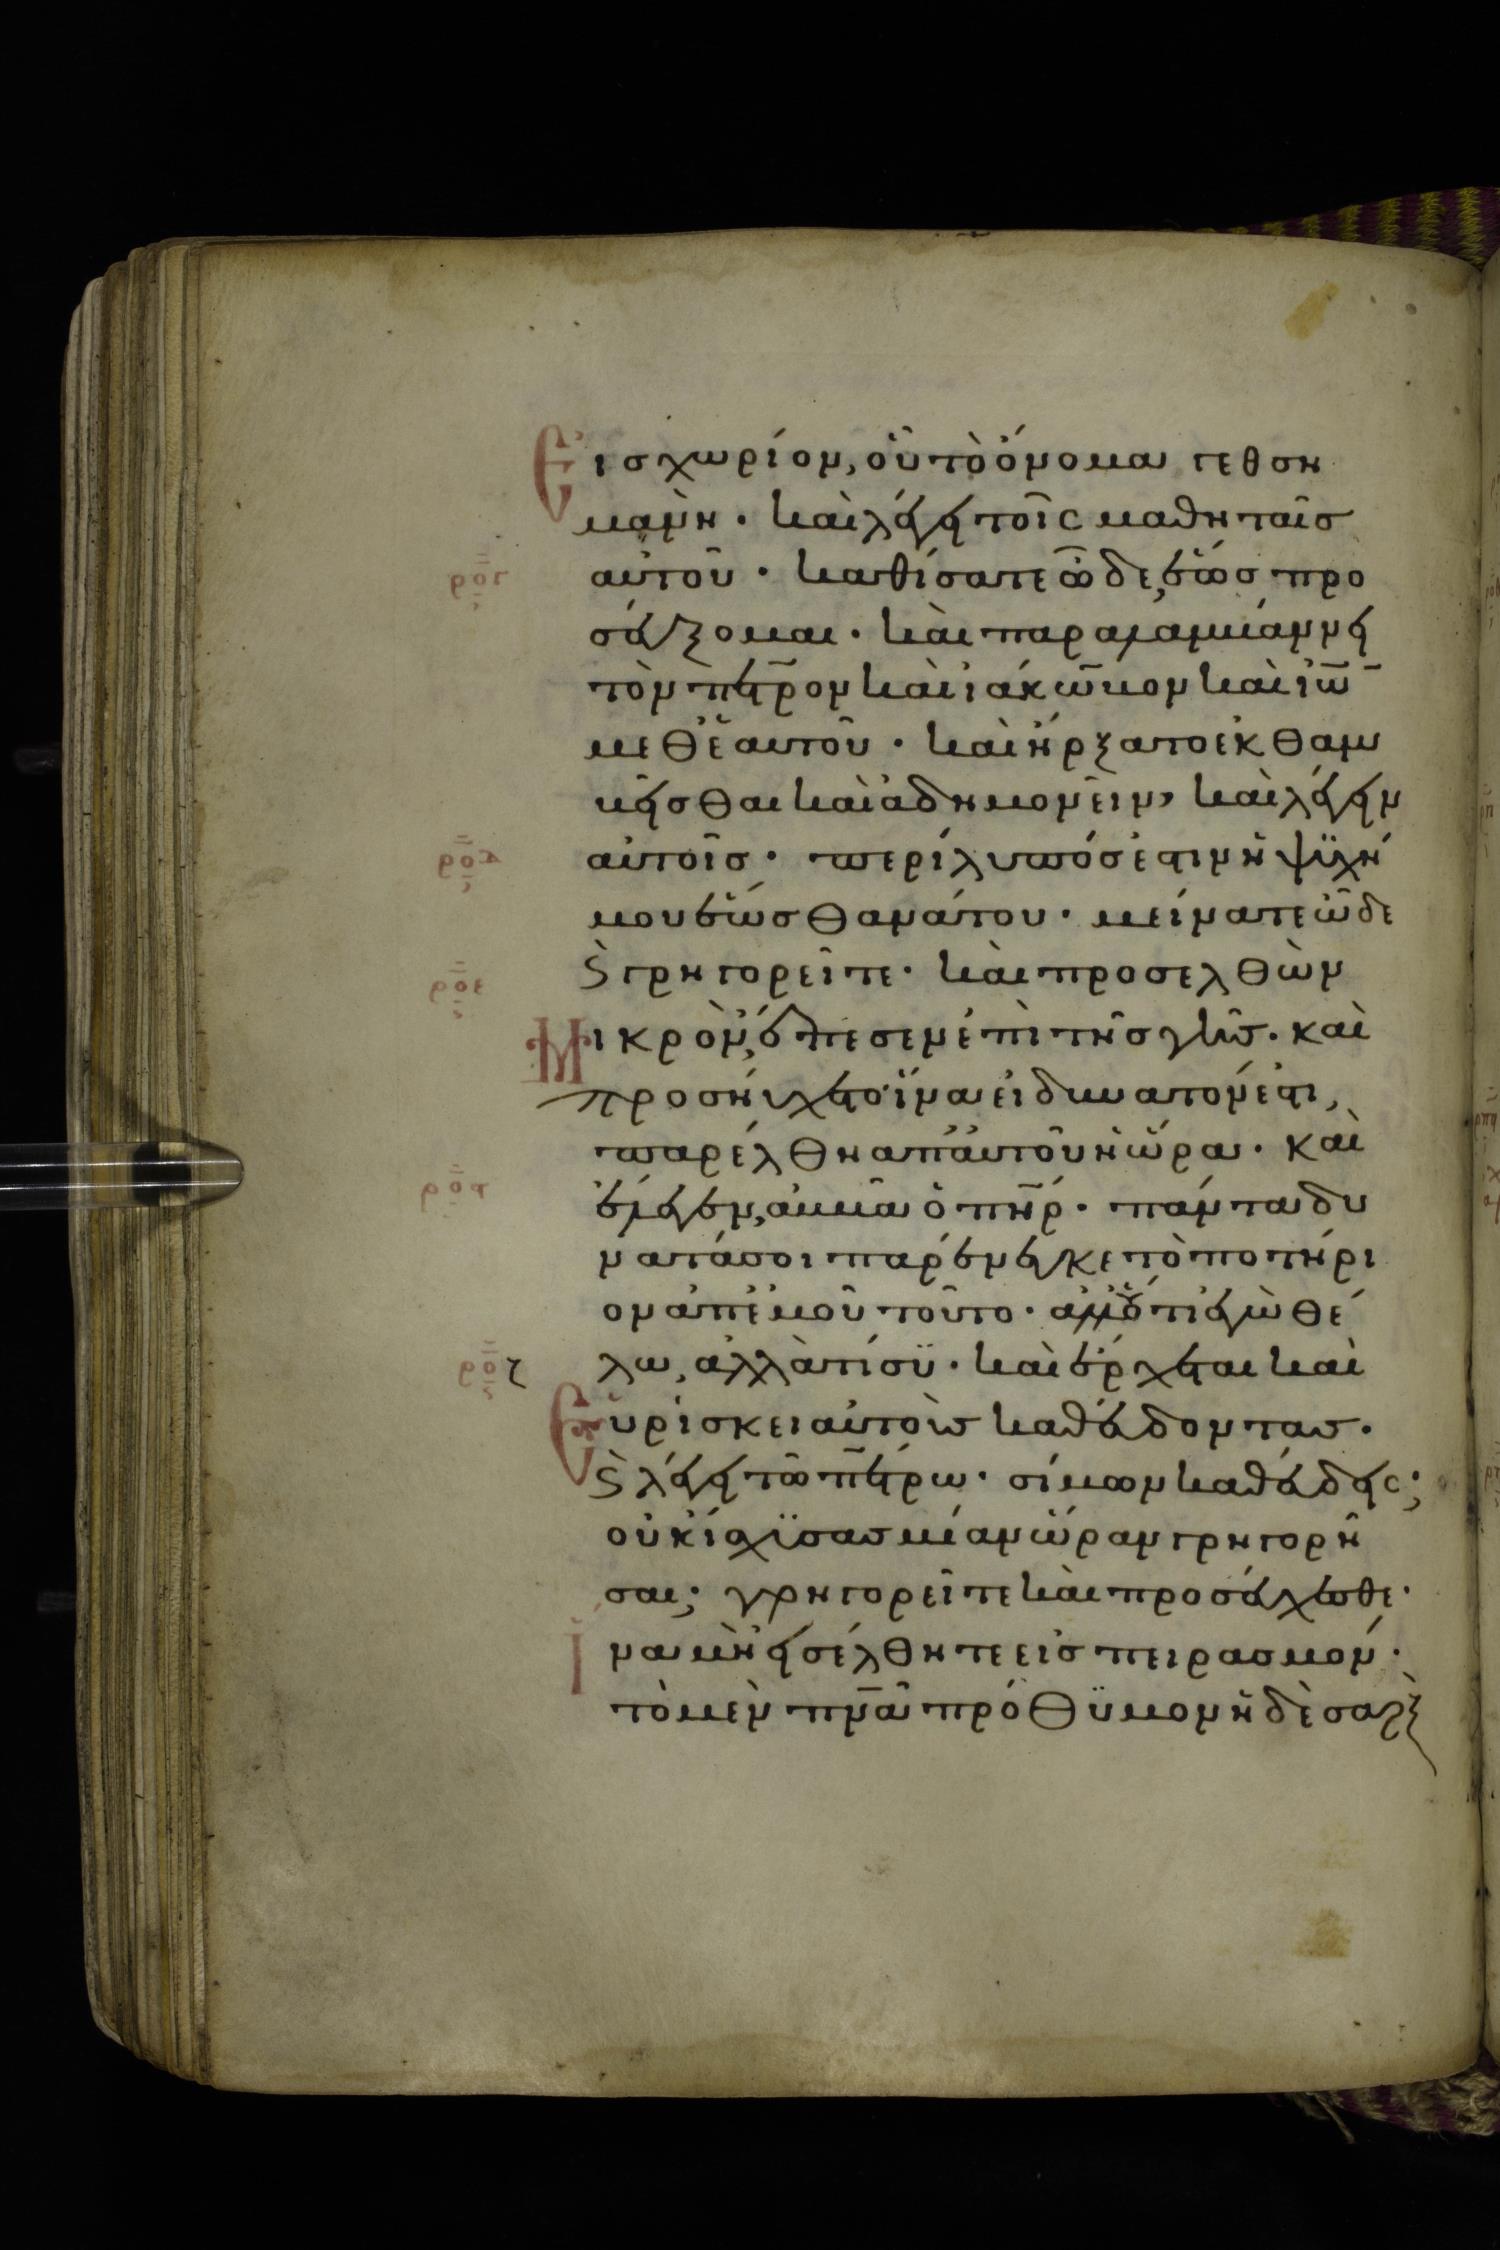 Εἰσ χωρίον, οὗ τὸ ὄνομα γεθση
μανῆ · καὶ λέγει τοῖς μαθηταῖσ
ρογ αὐτοῦ · καθίσατε ὧδε, ἕωσ προ
σεύξομαι · καὶ παραλαμβάνει
τὸν πέτρον καὶ ἰάκωβον καὶ ἰω̅
μεθ' ἑαυτοῦ · καὶ ἤρξατο ἐκθαμ
βεῖσθαι καὶ ἀδημονεῖν, καὶ λέγει
ροδ αὐτοῖσ · περίλυπόσ ἐστιν ἡ ψϋχή
μου ἕωσ θανάτου · μείνατε ὧδε
ροε ϗ γρηγορεῖτε · καὶ προσελθὼν
Μικρὸν, ἔπεσεν ἐπὶ τῆσ γῆσ · καὶ
προσηύχετο ἵνα εἰ δυνατόν ἐστι,
παρέλθη ἀπ' αὐτοῦ ἡ ὥρα · καὶ
ρος ἔλεγεν, ἀββᾶ ὁ πη̅ρ · πάντα δυ
νατά σοι παρένεγκε τὸ ποτήρι
ον ἀπ' ἐμοῦ τοῦτο · ἀλλ' οὐ τί ἐγὼ θέ
ροζ λω, ἀλλὰ τί σϋ · καὶ ἔρχεται καὶ
Εὑρίσκει αὐτοὺσ καθεύδοντασ ·
ϗ λέγει τῶ πέτρω · σίμων καθεύδεις;
οὐκ ἴσχϋσασ μίαν ὥραν γρηγορῆ
σαι; γρηγορεῖτε καὶ προσεύχεσθε ·
Ἵνα μὴ εἰσέλθητε εἰσ πειρασμόν ·
τὸ μὲν πν̅α πρόθϋμον ἡ δὲ σαρξ